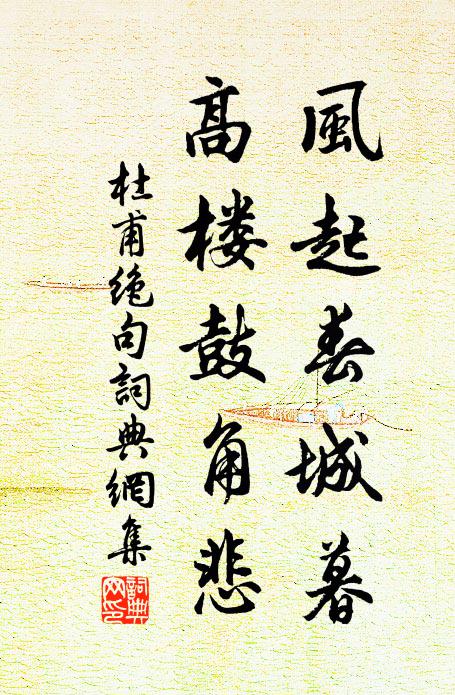 風起春城暮
高楼鼓角悲
杜甫絶句詞典網集
詞典網印